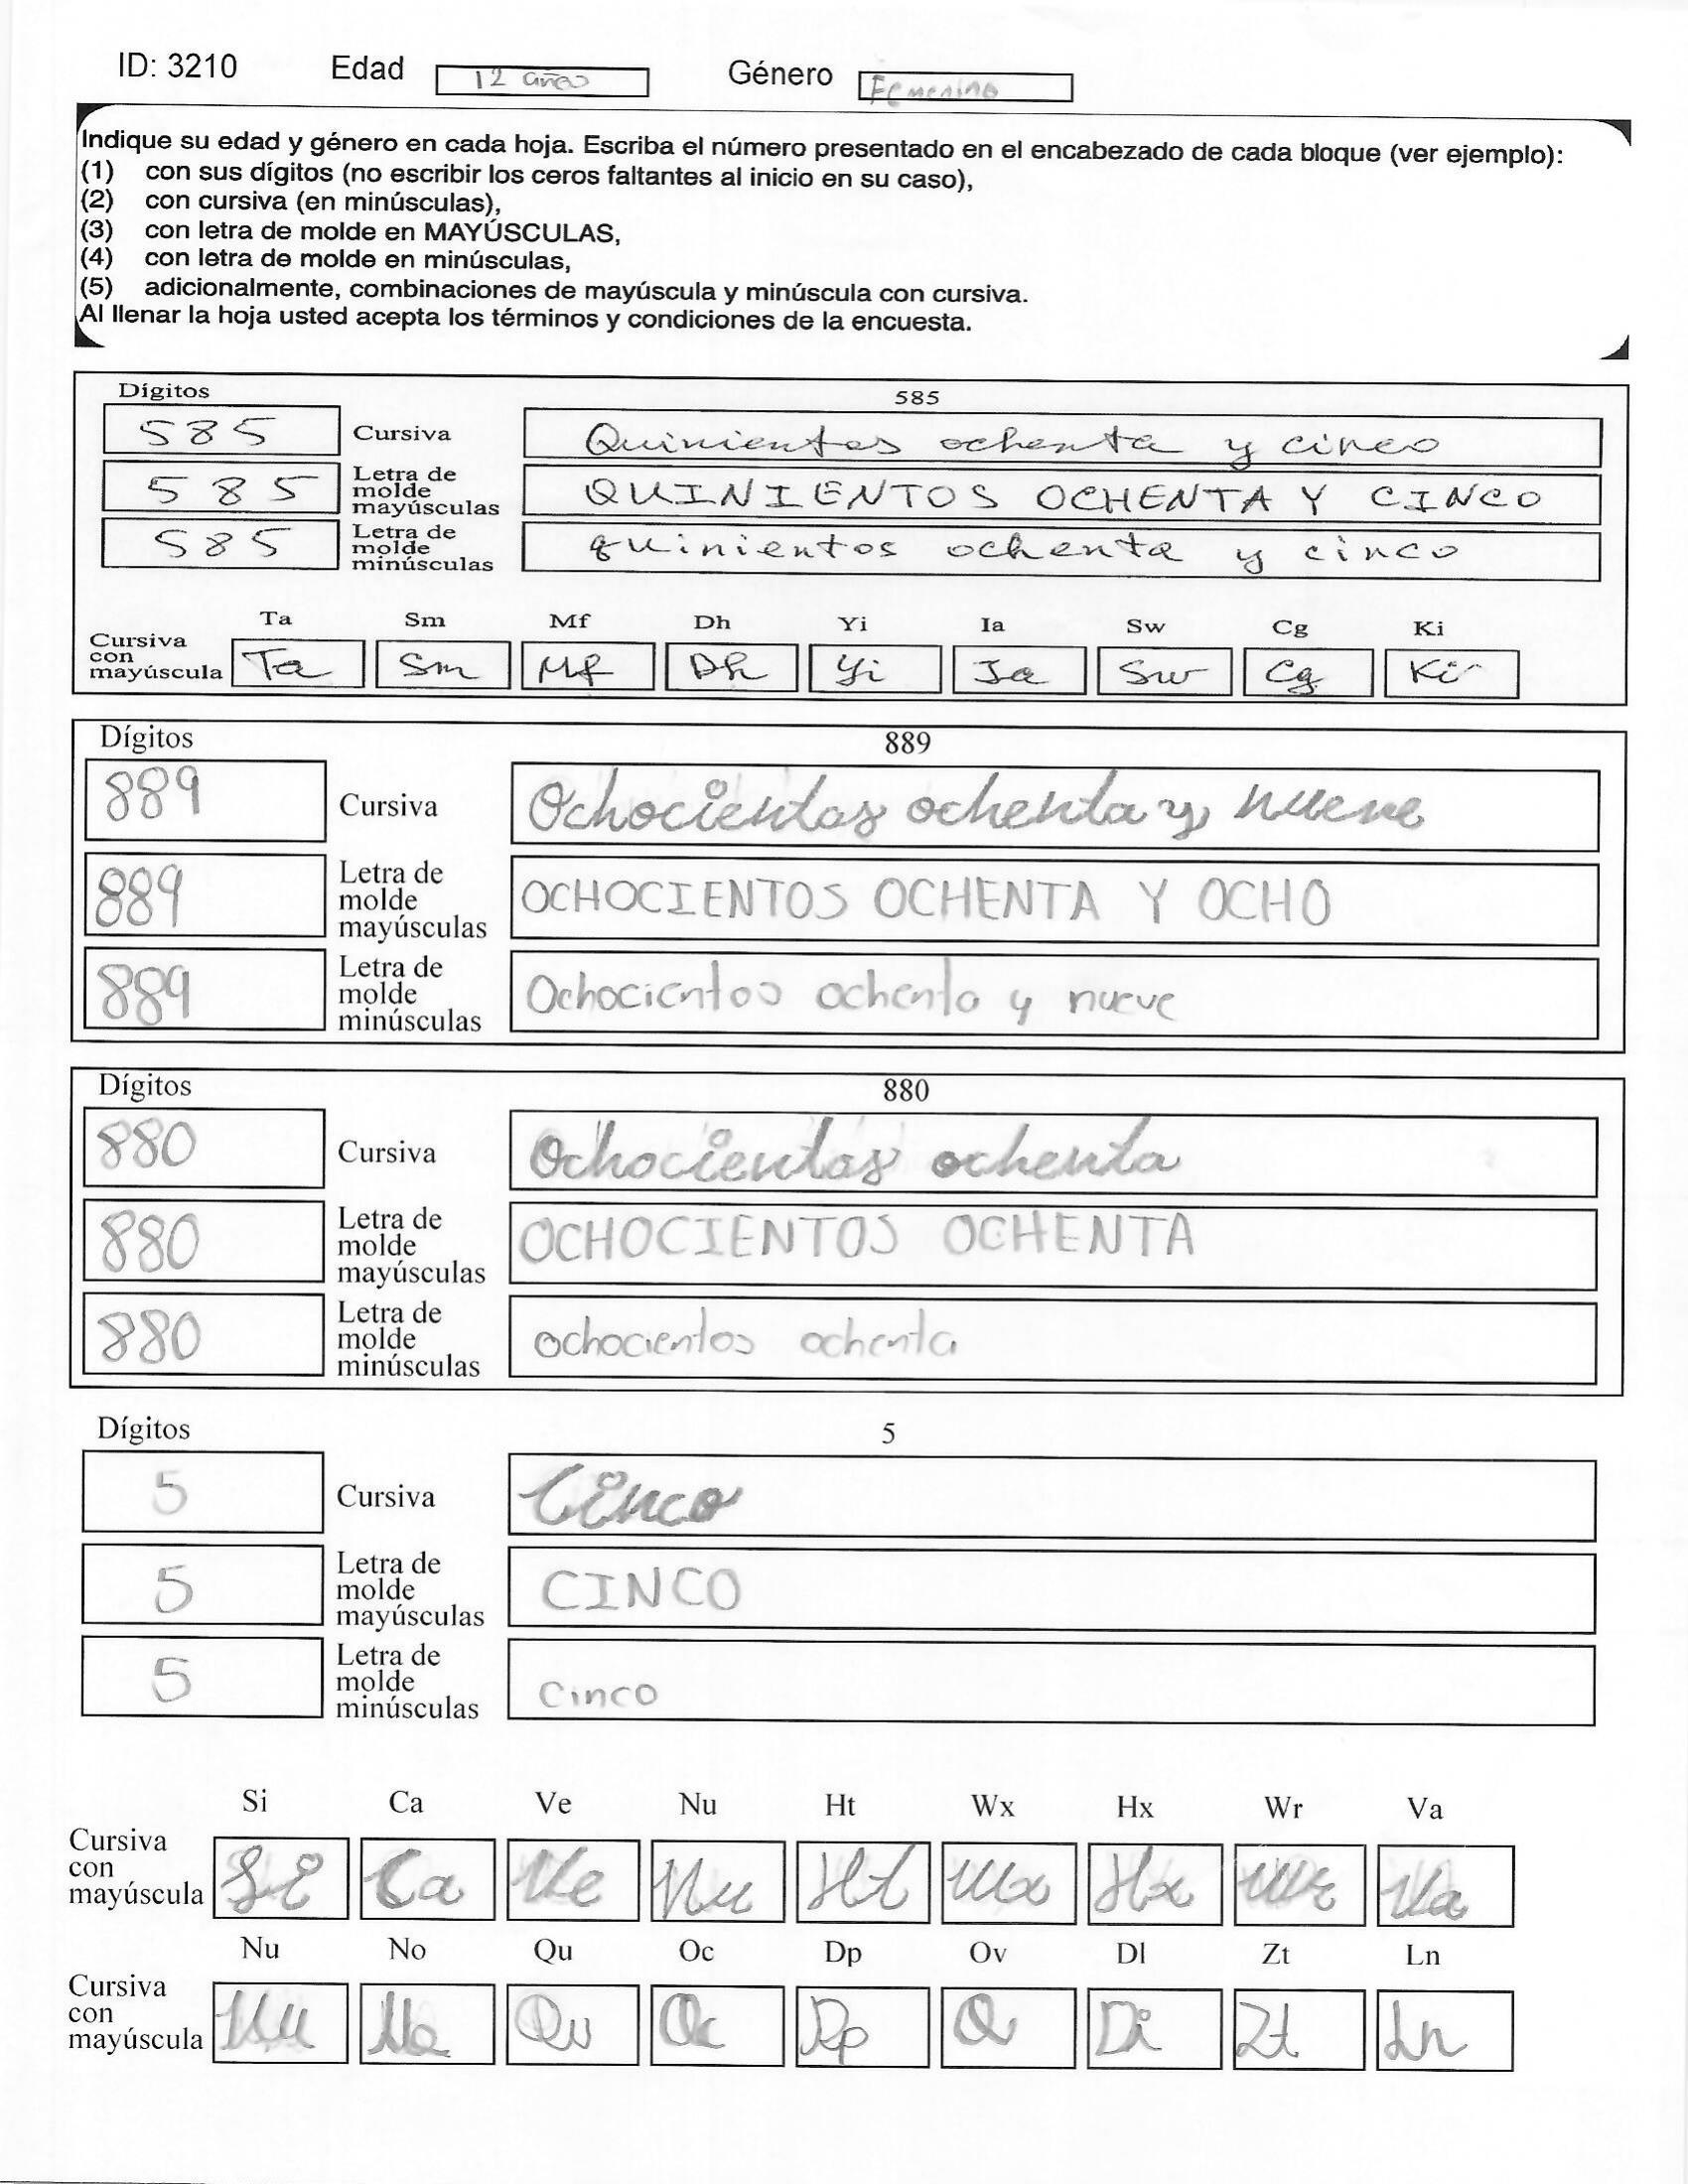 ID: 3210 Edad 12 años Género Femenino
Indique su edad y género en cada hoja. Escriba el número presentado en el encabezado de cada bloque (ver ejemplo):
(1) con sus dígitos (no escribir los ceros faltantes al inicio en su caso),
(2) con cursiva (en minúsculas),
(3) con letra de molde en MAYÚSCULAS,
(4) con letra de molde en minúsculas,
(5) adicionalmente, combinaciones de mayúscula y minúscula con cursiva.
Al llenar la hoja usted acepta los términos y condiciones de la encuesta.
Dígitos 585
585 Cursiva Quinientos ochenta y cinco
585 Letra de molde mayúsculas QUINIENTOS OCHENTA Y CINCO
585 Letra de molde minúsculas quinientos ochenta y cinco
Ta Sm Mf Dh Yi Ia Sw Cg Ki
Cursiva con mayúscula Ta Sm Mf Dh Yi Ia Sw Cg Ki
Dígitos 889
889 Cursiva Ochocientos ochenta y nueve
889 Letra de molde mayúsculas OCHOCIENTOS OCHENTA Y OCHO
889 Letra de molde minúsculas Ochocientos ochenta y nueve
Dígitos 880
880 Cursiva Ochocientos ochenta
880 Letra de molde mayúsculas OCHOCIENTOS OCHENTA
880 Letra de molde minúsculas ochocientos ochenta
Dígitos 5
5 Cursiva Cinco
5 Letra de molde mayúsculas CINCO
5 Letra de molde minúsculas Cinco
Si Ca Ve Nu Ht Wx Hx Wr Va
Cursiva con mayúscula Si Ca Ve Nu Ht Wx Hx Wr Va
Nu No Qu Oc Dp Ov Dl Zt Ln
Cursiva con mayúscula Nu No Qu Oc Dp Ov Di Zt Ln